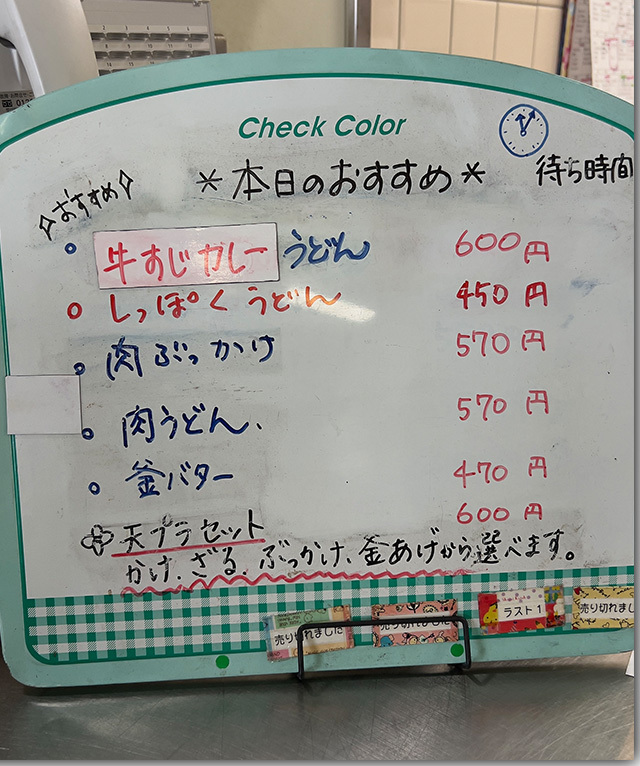 Check Color
*本日のおすすめ*
待ち時間
おすすめ
牛すじカレーうどん 600円
しっぽくうどん 450円
肉ぶっかけ 570円
肉うどん. 570円
釜バター 470円
天プラセット 600円
かけ、ざる、ぶっかけ、釜あげから選べます。
売り切れました
売り切れました
ラスト1
売り切れまし